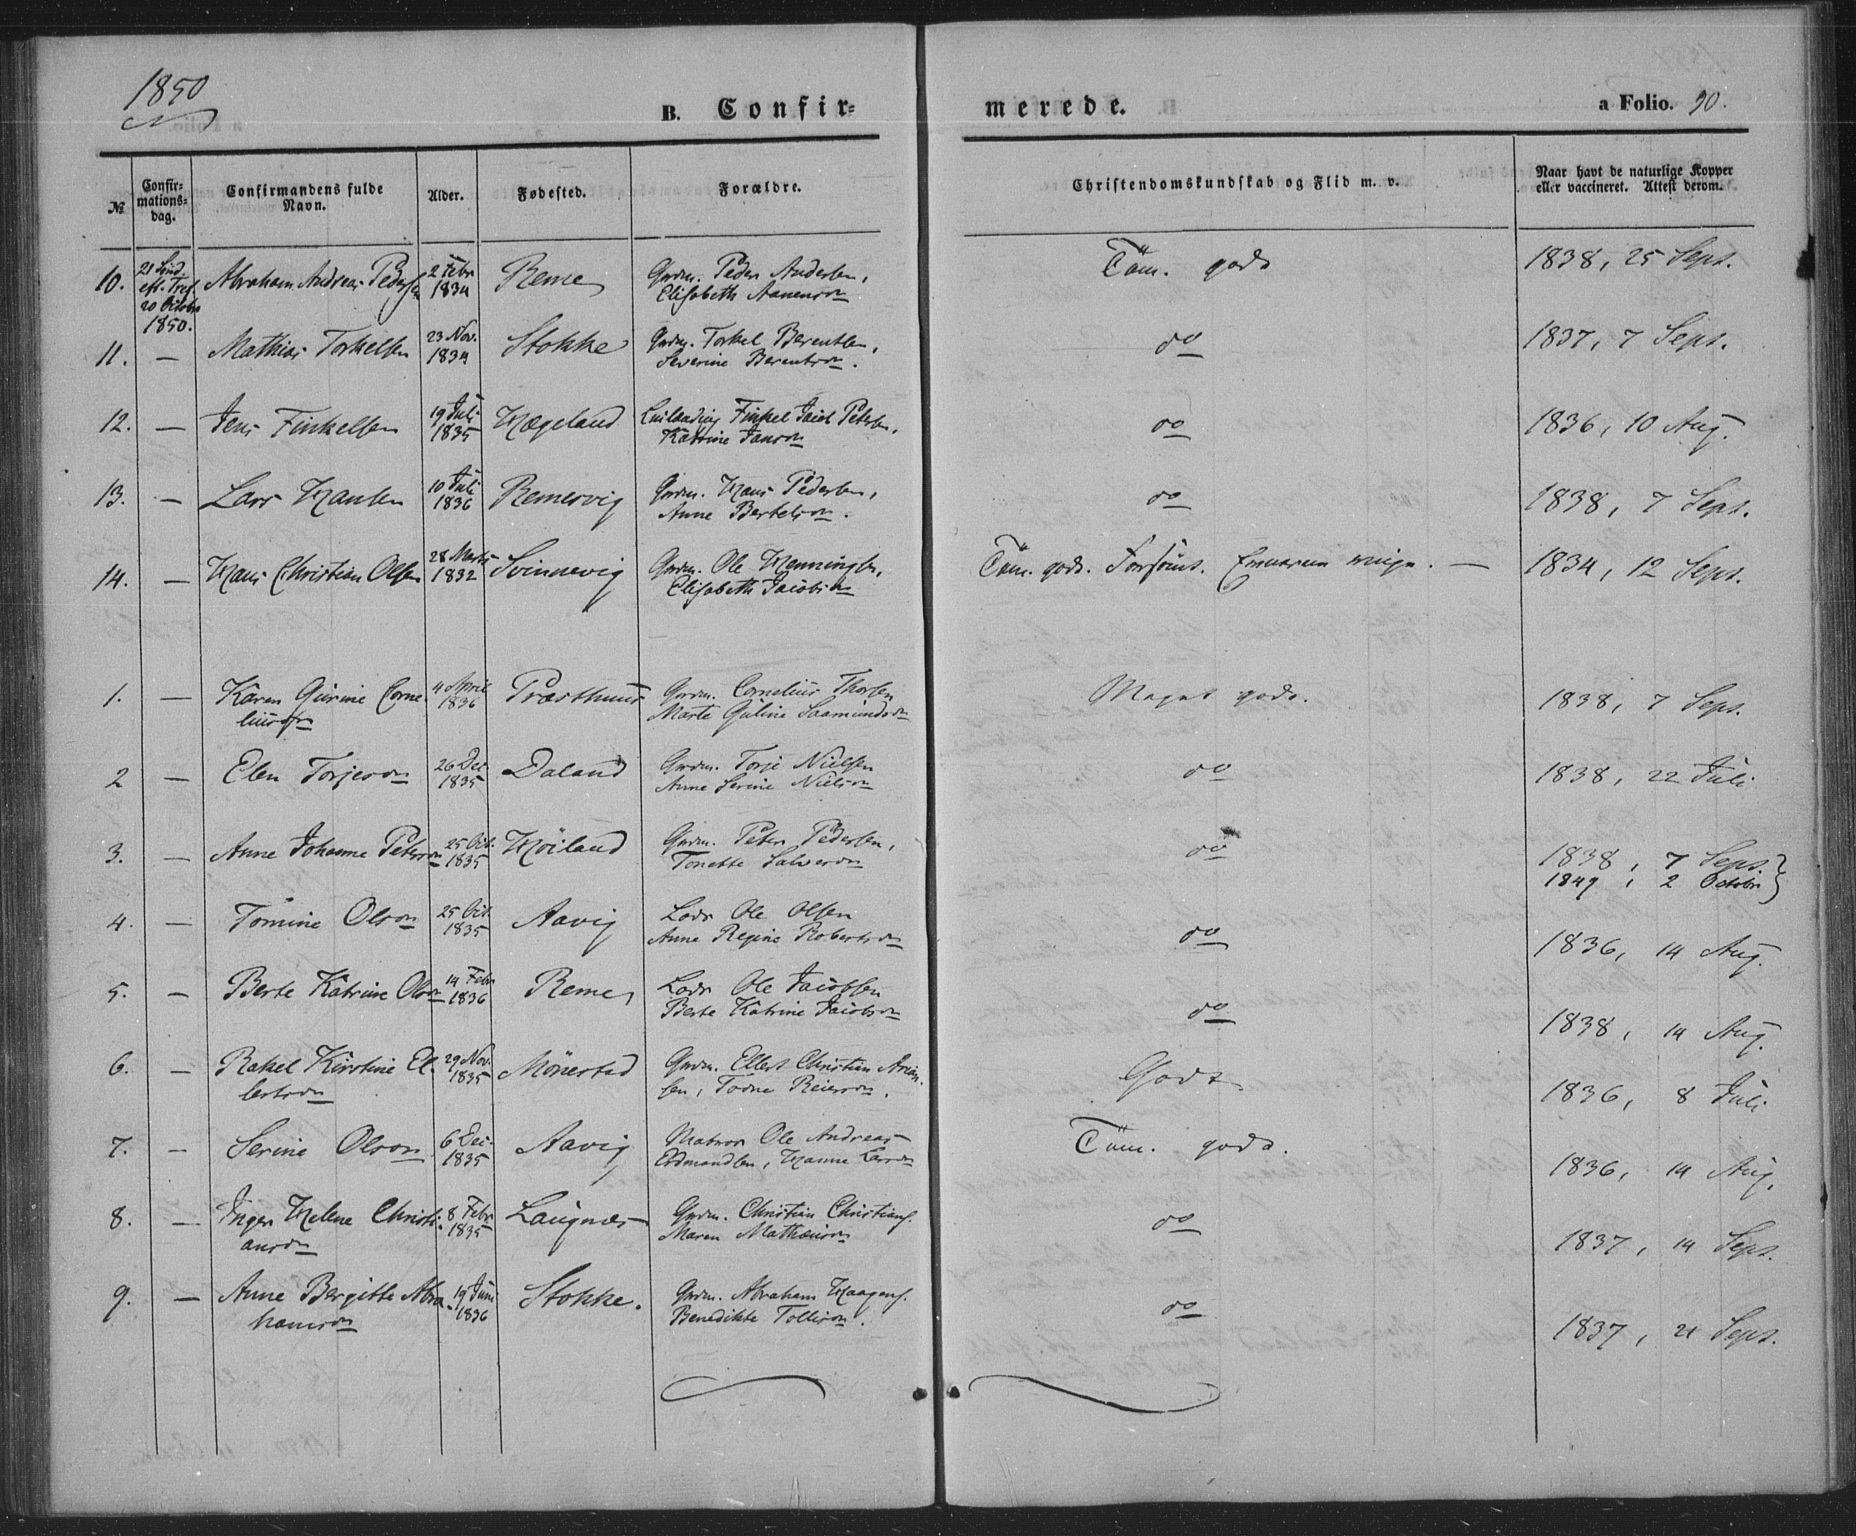 1850
B. Confir- merede. a Folio. 90.
№ Confir-mations-dag. Confirmandens fulde Navn. Alder. Fødested. Forældre. Christendomskundskab og Flid m. v. Naar havt de naturlige Kopper eller vaccineret. Attest derom.
10. 21 Sønd. eft. Tref. 20 Octobr 1850. Abraham Andreas Pedersen 2 Febr 1834 Reme Grdm. Peder Andersen, Elisabeth Aanensdn Tæm. godt 1838, 25 Sept.
11. — Mathias Torkelsen 23 Nov. 1834 Stokke Grdm. Torkel Berentsen, Severine Berentsdn. do 1837, 7 Sept.
12. — Jens Finkelsen 19 Juli 1835 Hægeland Finkel Jacob Petersen, Katrine Jansdn do 1836, 10 Aug.
13. — Lars Hansen 10 Juli 1836 Remesvig Grdm. Hans Pedersen, Anne Bertelsdn. do 1838, 7 Sept.
14. — Hans Christian Olsen 28 Marts 1832 Svinnevig Grdm. Ole Henningsen, Elisabeth Jacobsdn Tæm. godt. Forsømt. ringe. — 1834, 12 Sept.
1. — Karen Gurine Corneliusdn 4 April 1836 Præsthuus Grdm. Cornelius Thorsen Marte Guline Saamundsdn Meget godt. 1838, 7 Sept.
2 — Elen Torjesdn 26 Dec. 1835 Daland Grdm. Torje Nielsen Anne Serine Nielsdn do 1838, 22 Juli
3. — Anne Johanne Petersdn 25 Oct. 1835 Høiland Grdm. Peter Pedersen, Tonette Salvesdn do 1838, 7 Sept.
1849, 2 Octobr
4. — Tomine Olsdn 25 Oct. 1835 Aavig Lods Ole Olsen Anne Regine Robertsdn do 1836, 14 Aug.
5. — Berte Katrine Olsdn 14 Febr 1836 Reme Lods Ole Jacobsen Berte Katrine Jacobsdn do 1838, 14 Aug.
6. — Rakel Kirstine Ellertsdn 29 Nov. 1835 Mønestad Grdm. Ellert Christian Ariansen, Todne Reiersdn. Godt 1836, 8 Juli
7. — Serine Olsdn 6 Dec. 1835 Aavig Matros Ole Andreas Erdmandsen, Hanne Larsdn Tæm. godt. 1836, 14 Aug.
8. — Inger Helene Christiansdn 8 Febr 1835 Laugnes Grdm. Christian Christians. Maren Mathæusdn do 1837, 14 Sept.
9. — Anne Bergitte Abrahamsdn 19 Juni 1836 Stokke. Grdm. Abraham Haagens. Benedikte Tollisdn. do 1837, 21 Sept.